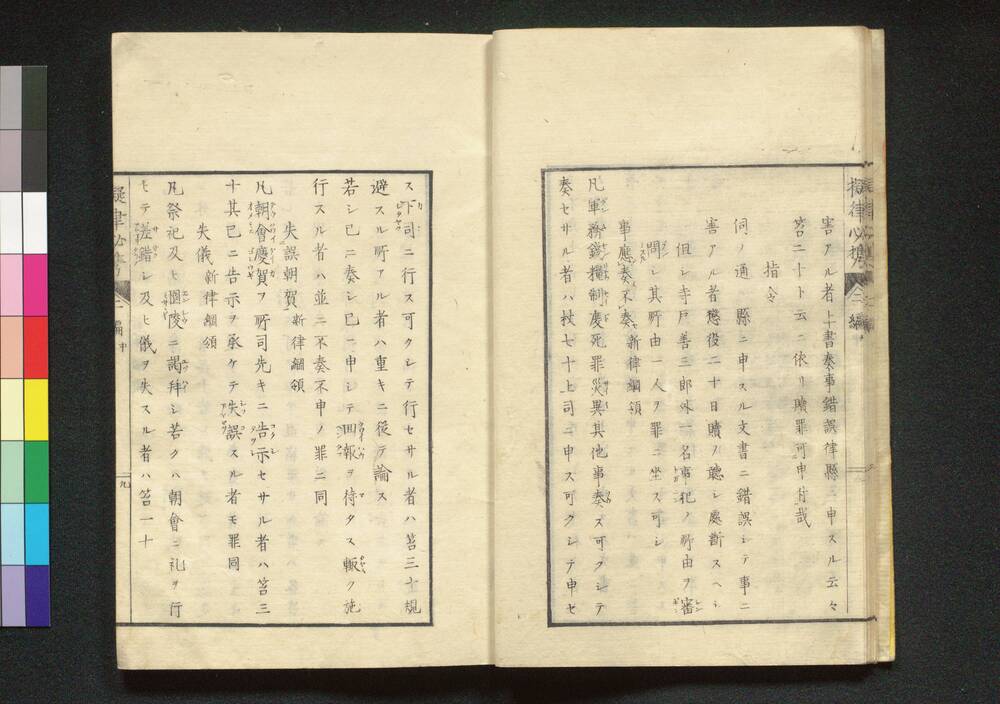 擬律必携 二編
害アル者上書奏事錯誤律縣ニ申スル云々
笞二十ト云ニ依リ贖罪可申付哉
指令
伺ノ通縣ニ申スル文書ニ錯誤シテ事ニ
害アル者懲役二十日贖フ聽シ處斷スヘシ
但シ寺戸善三郎外一名事犯ノ所由ヲ審
問シ其所由一人ヲ罪ニ坐ス可シ
事應奏不奏 新律綱領
凡軍務錢糧制度死罪災異其他事奏ス可クシテ
奏セサル者ハ杖七十上司ニ申ス可クシテ申セ
ス下司ニ行ス可クシテ行セサル者ハ笞三十規
避スル所アル者ハ重キニ從テ論ス
若シ已ニ奏シ已ニ申シテ回報ヲ待タス輙ク施
行スル者ハ並ニ不奏不申ノ罪ニ同
失誤朝賀 新律綱領
凡朝會慶賀ヲ所司先キニ告示セサル者ハ笞三
十其已ニ告示ヲ承ケテ失誤スル者モ罪同
失儀 新律綱領
凡祭祀及ヒ園陵ニ謁拜シ若クハ朝會ニ礼ヲ行
モテ差錯シ及ヒ儀ヲ失スル者ハ笞一十